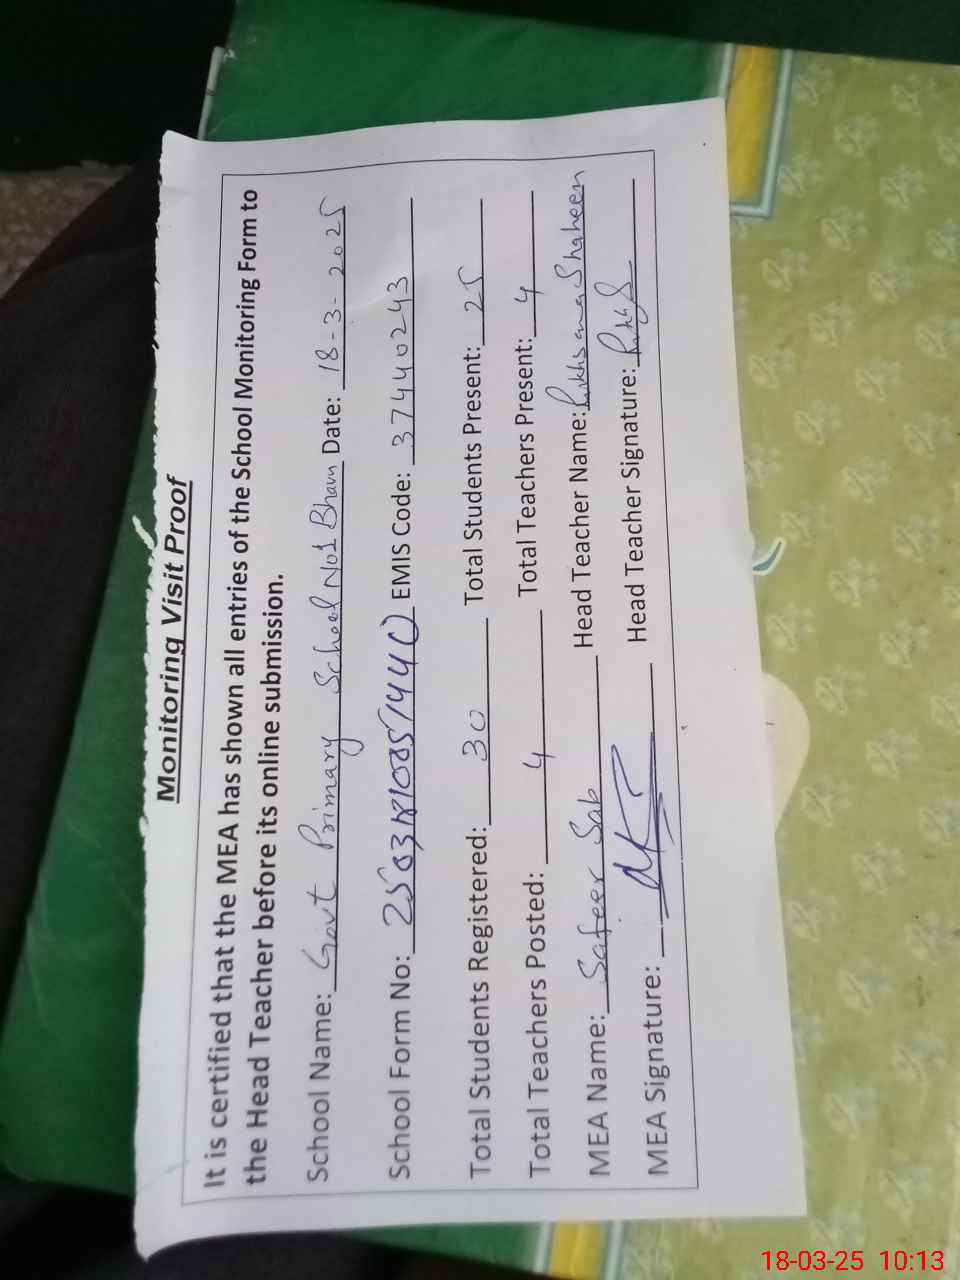 Monitoring Visit Proof
It is certified that the MEA has shown all entries of the School Monitoring Form to
the Head Teacher before its online submission.
School Name: Govt Primary School No1 Bham Date: 18-3-2025
School Form No: EMIS Code: 37440243
Total Students Registered: 30 Total Students Present: 25
Total Teachers Posted: 4 Total Teachers Present: 4
MEA Name: Safeer Sab Head Teacher Name: Rukhsana Shaheen
MEA Signature: Head Teacher Signature:
18-03-25 10:13